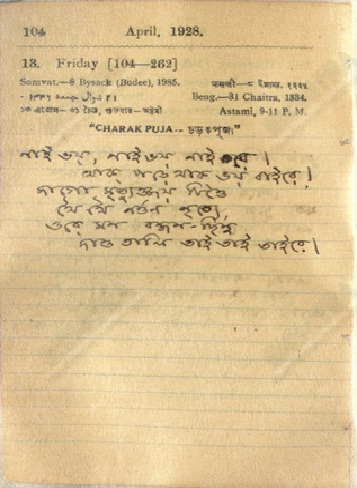 104 April, 1928.
13. Friday [104—262]
Samvat.—8 Bysack (Budee), 1985.
Beng.—31 Chaitra, 1334.
Astami, 9-11 P. M.
"CHARAK PUJA — চড়কপূজা"
নাই ভয়, নাই ভয় নাই রে।
থাক্ পড়ে থাক্ ভয় বাইরে।
জাগো মৃত্যুঞ্জয় চিত্তে
থৈ থৈ নর্তন নৃত্যে,
ওরে মন বন্ধন-ছিন্ন
দাও তালি তাই তাই তাইরে।